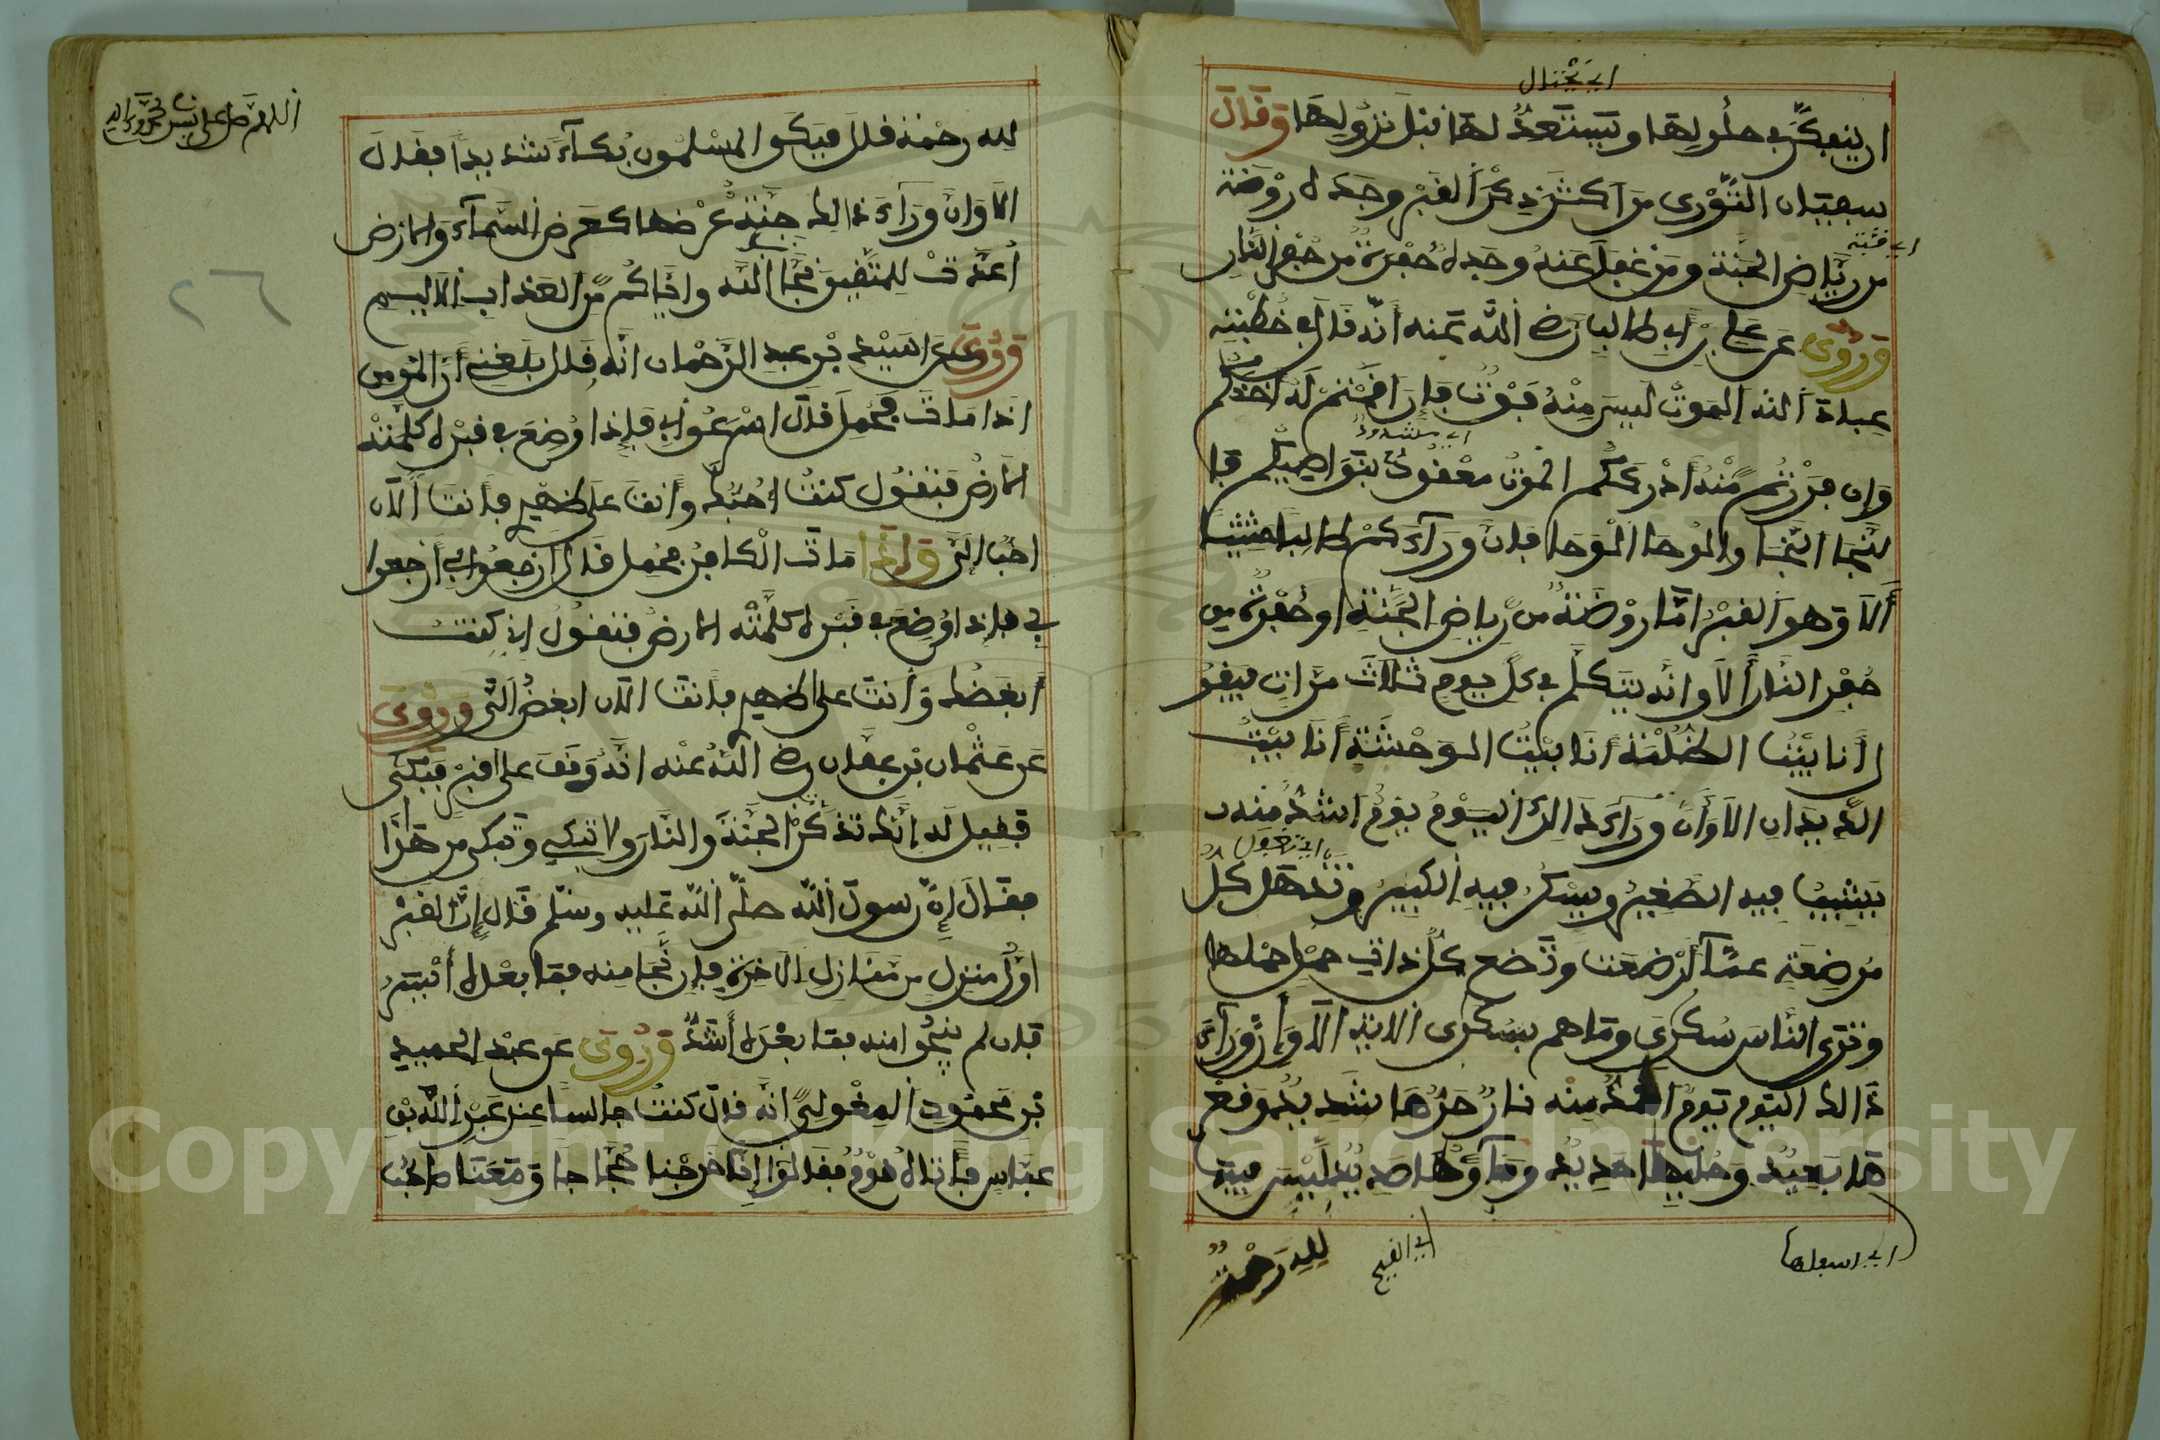 اي يحتال
ان يتفكر في حلولها ويستعد لها قبل نزولها وقال
سفيان الثوري من اكثر ذكر القبر وجده روضة
من رياض الجنة ومن غفل عنه وجده حفرة من حفر النار
وروي عن علي بن ابي طالب رضي الله عنه أنه قال في خطبته
عباد الله الموت ليس منه فوت فإن اقمتم له اخذكم
وإن فررتم منه أدرككم الموت معقود بنواصيكم فا
لنجا النجا والوحا الوحا فإن وراءكم طالبا حثيثا
ألا وهو القبر اما روضة من رياض الجنة او حفرة من
حفر النار ألا وانه يتكلم في كل يوم ثلاث مرات فيقو
ل أنا بيت الظلمة أنا بيت الوحشة أنا بيت
الديدان الا وأن وراء ذالك اليوم يوم اشد منه
يشيب فيه الصغير ويسكر فيه الكبير وتذهل كل
مرضعة عما أرضعت وتضع كل ذات حمل حملها
وترى الناس سكرى وما هم بسكرى الاية الا وإن وراء
ذالك اليوم يوم اشد منه نار حرها شديد وقع
ها بعيد وحليها حديد وماؤها صديد ليس فيه
لله رحمة
لله رحمة قال فبكى المسلمون بكاء شديدا فقال
الا وان وراء ذالك جنة عرضها كعرض السماء والارض
أعدت للمتقين نجا الله واياكم من العذاب الاليم
وروي عن اسيد بن عبد الرحمان انه قال بلغني أن المومن
اذا مات فحمل قال اسرعوا بي فإذا وضع في قبره كلمته
الارض فتقول كنت احبك وأنت على ظهري فأنت الآن
احب الي وإذا مات الكافر فحمل قال ارجعوا بي ارجعوا
بي فإذا وضع في قبره كلمته الارض فتقول اني كنت
أبغضك وأنت على ظهري فأنت الآن ابغض الي وروي
عن عثمان بن عفان رضي الله عنه انه وقف على قبر فبكى
فقيل له إنك تذكر الجنة والنار ولا تبكي وتبكي من هذا
فقال إن رسول الله صلى الله عليه وسلم قال إن القبر
اول منزل من منازل الاخرة فإن نجا منه فما بعده أيسر
فإن لم ينج منه فما بعده أشد وروي عن عبد الحميد
بن محمود المغولي انه قال كنت جالسا عند عبد الله بن
عباس فأتاه قوم فقالوا إنا خرجنا حجاجا ومعنا صاحب